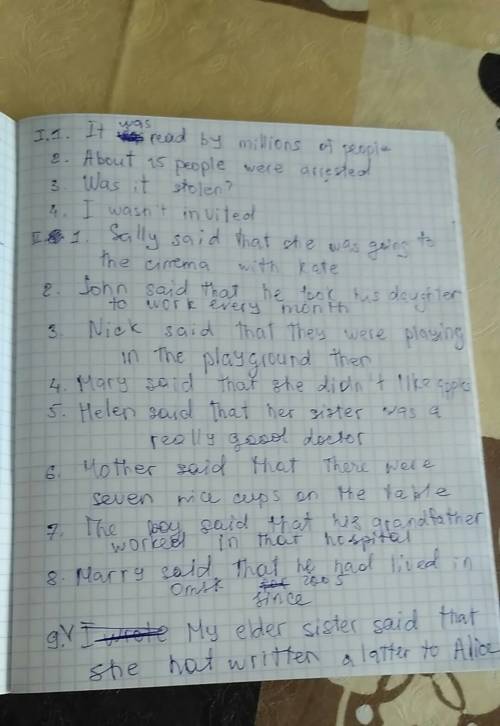 I.1. It was read by millions of people
2. About 15 people were arrested
3. Was it stolen?
4. I wasn't invited
II 1. Sally said that she was going to
the cinema with Kate
2. John said that he took his daughter
to work every month
3. Nick said that they were playing
in the playground then
4. Mary said that she didn't like apples
5. Helen said that her sister was a
really good doctor
6. Mother said that there were
seven nice cups on the table
7. The boy said that his grandfather
worked in that hospital
8. Marry said that he had lived in
Omsk since 2005
9. I wrote My elder sister said that
she hat written a latter to Alice